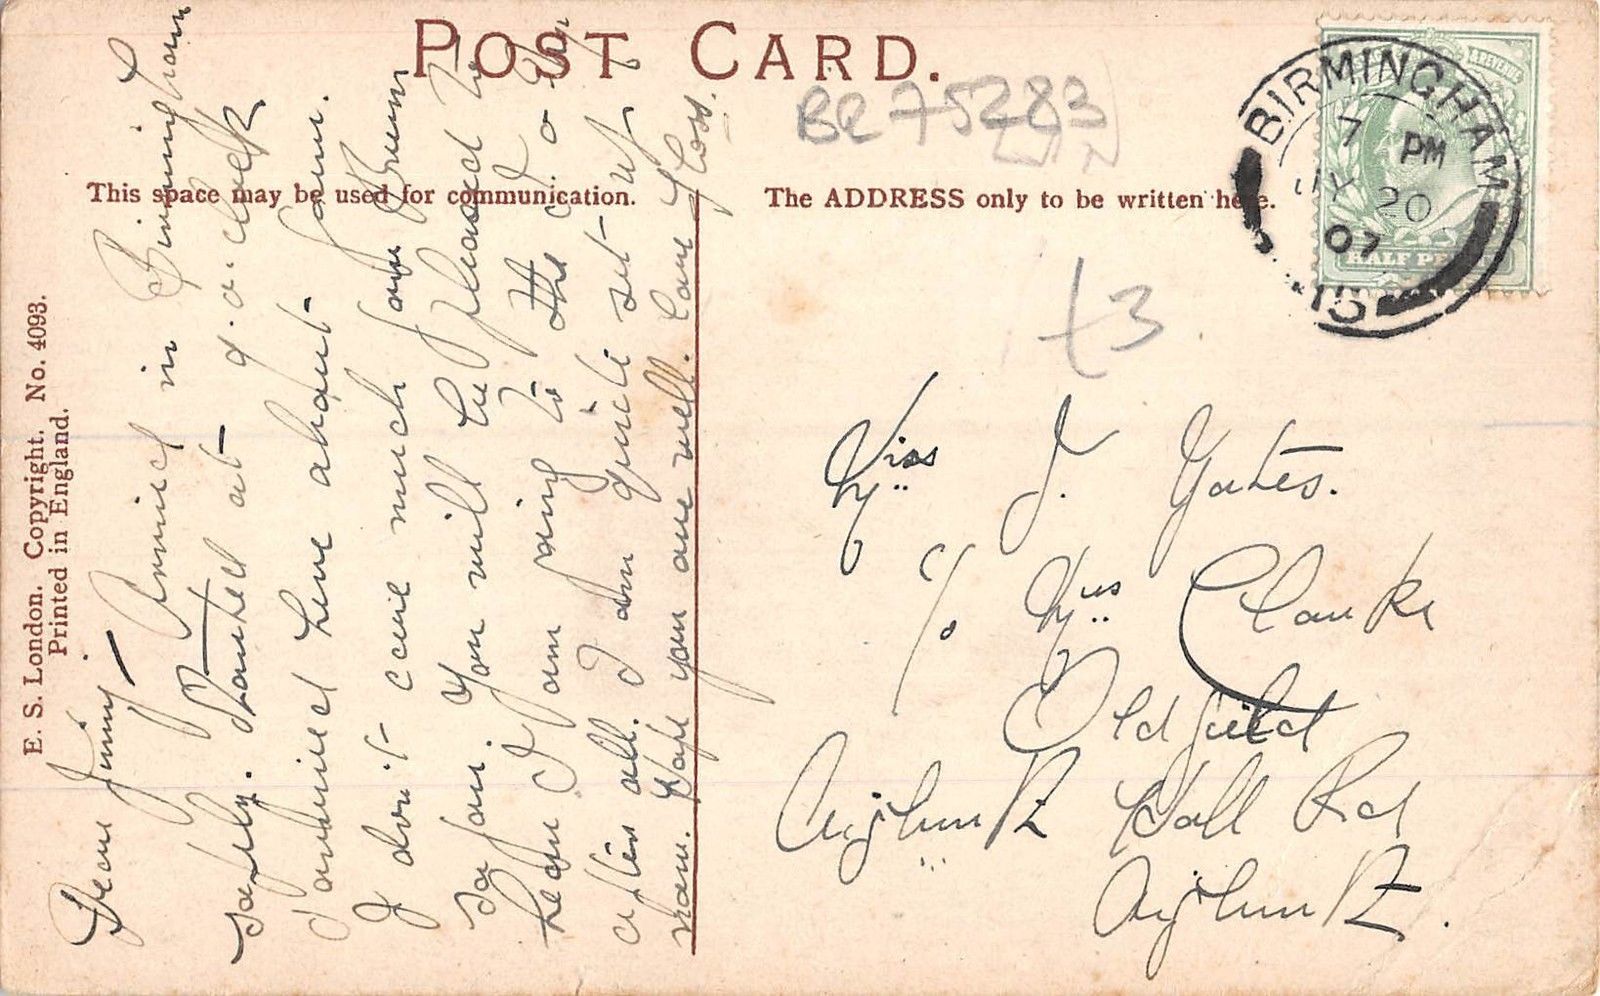 POST CARD.
This space may be used for communication.
The ADDRESS only to be written here.
E. S. London. Copyright. No. 4093.
Printed in England.
BIRMINGHAM
7 PM
JY 20
07
15
HALF PENNY
BR 75283
£3
Dear Jinny— Arrived in Birmingham
safely. Started at 9.o.clock
I arrived here about four.
I don't care much for Brum
so far. You will be pleased to
hear I am going to the C. O.
after all. I am quite set up
now. Hope you are well. Love Floss.
Miss J. Yates.
c/o Mrs Clarke
Oldfield
Aigburth Hall Rd
Aigburth.